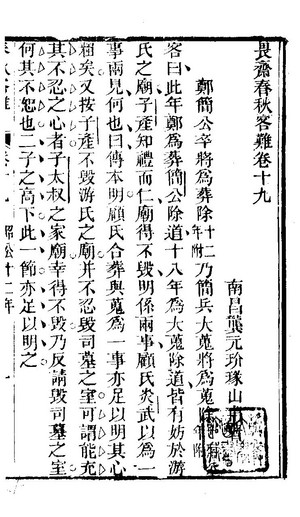 畏齋春秋客難卷十九
南昌龔元玠瑑山
鄭簡公卒將為葬除十二年附乃簡兵大蒐將為蒐除
客曰此年鄭為葬簡公除道十八年為大蒐除道皆有妨於游
氏之廟子產知禮而仁廟得不毀明係兩事顧氏炎武以為一
事兩見何也曰傳本明顧氏合葬與蒐為一事亦足以明其心
粗矣又按子產不毀游氏之廟并不忍毀司墓之室可謂能充
其不忍之心者子太叔之家廟幸得不毀乃反請毀司墓之室
何其不恕也二子之高下此一節亦足以明之